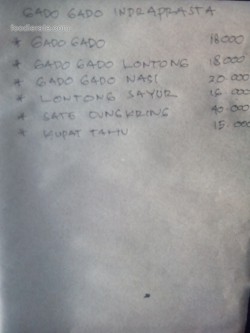 GADO GADO INDRAPRASTA
* GADO GADO 18.000
* GADO GADO LONTONG 18.000
* GADO GADO NASI 20.000
* LONTONG SAYUR 16.000
* SATE 40.000
* KUPAT TAHU 15.000